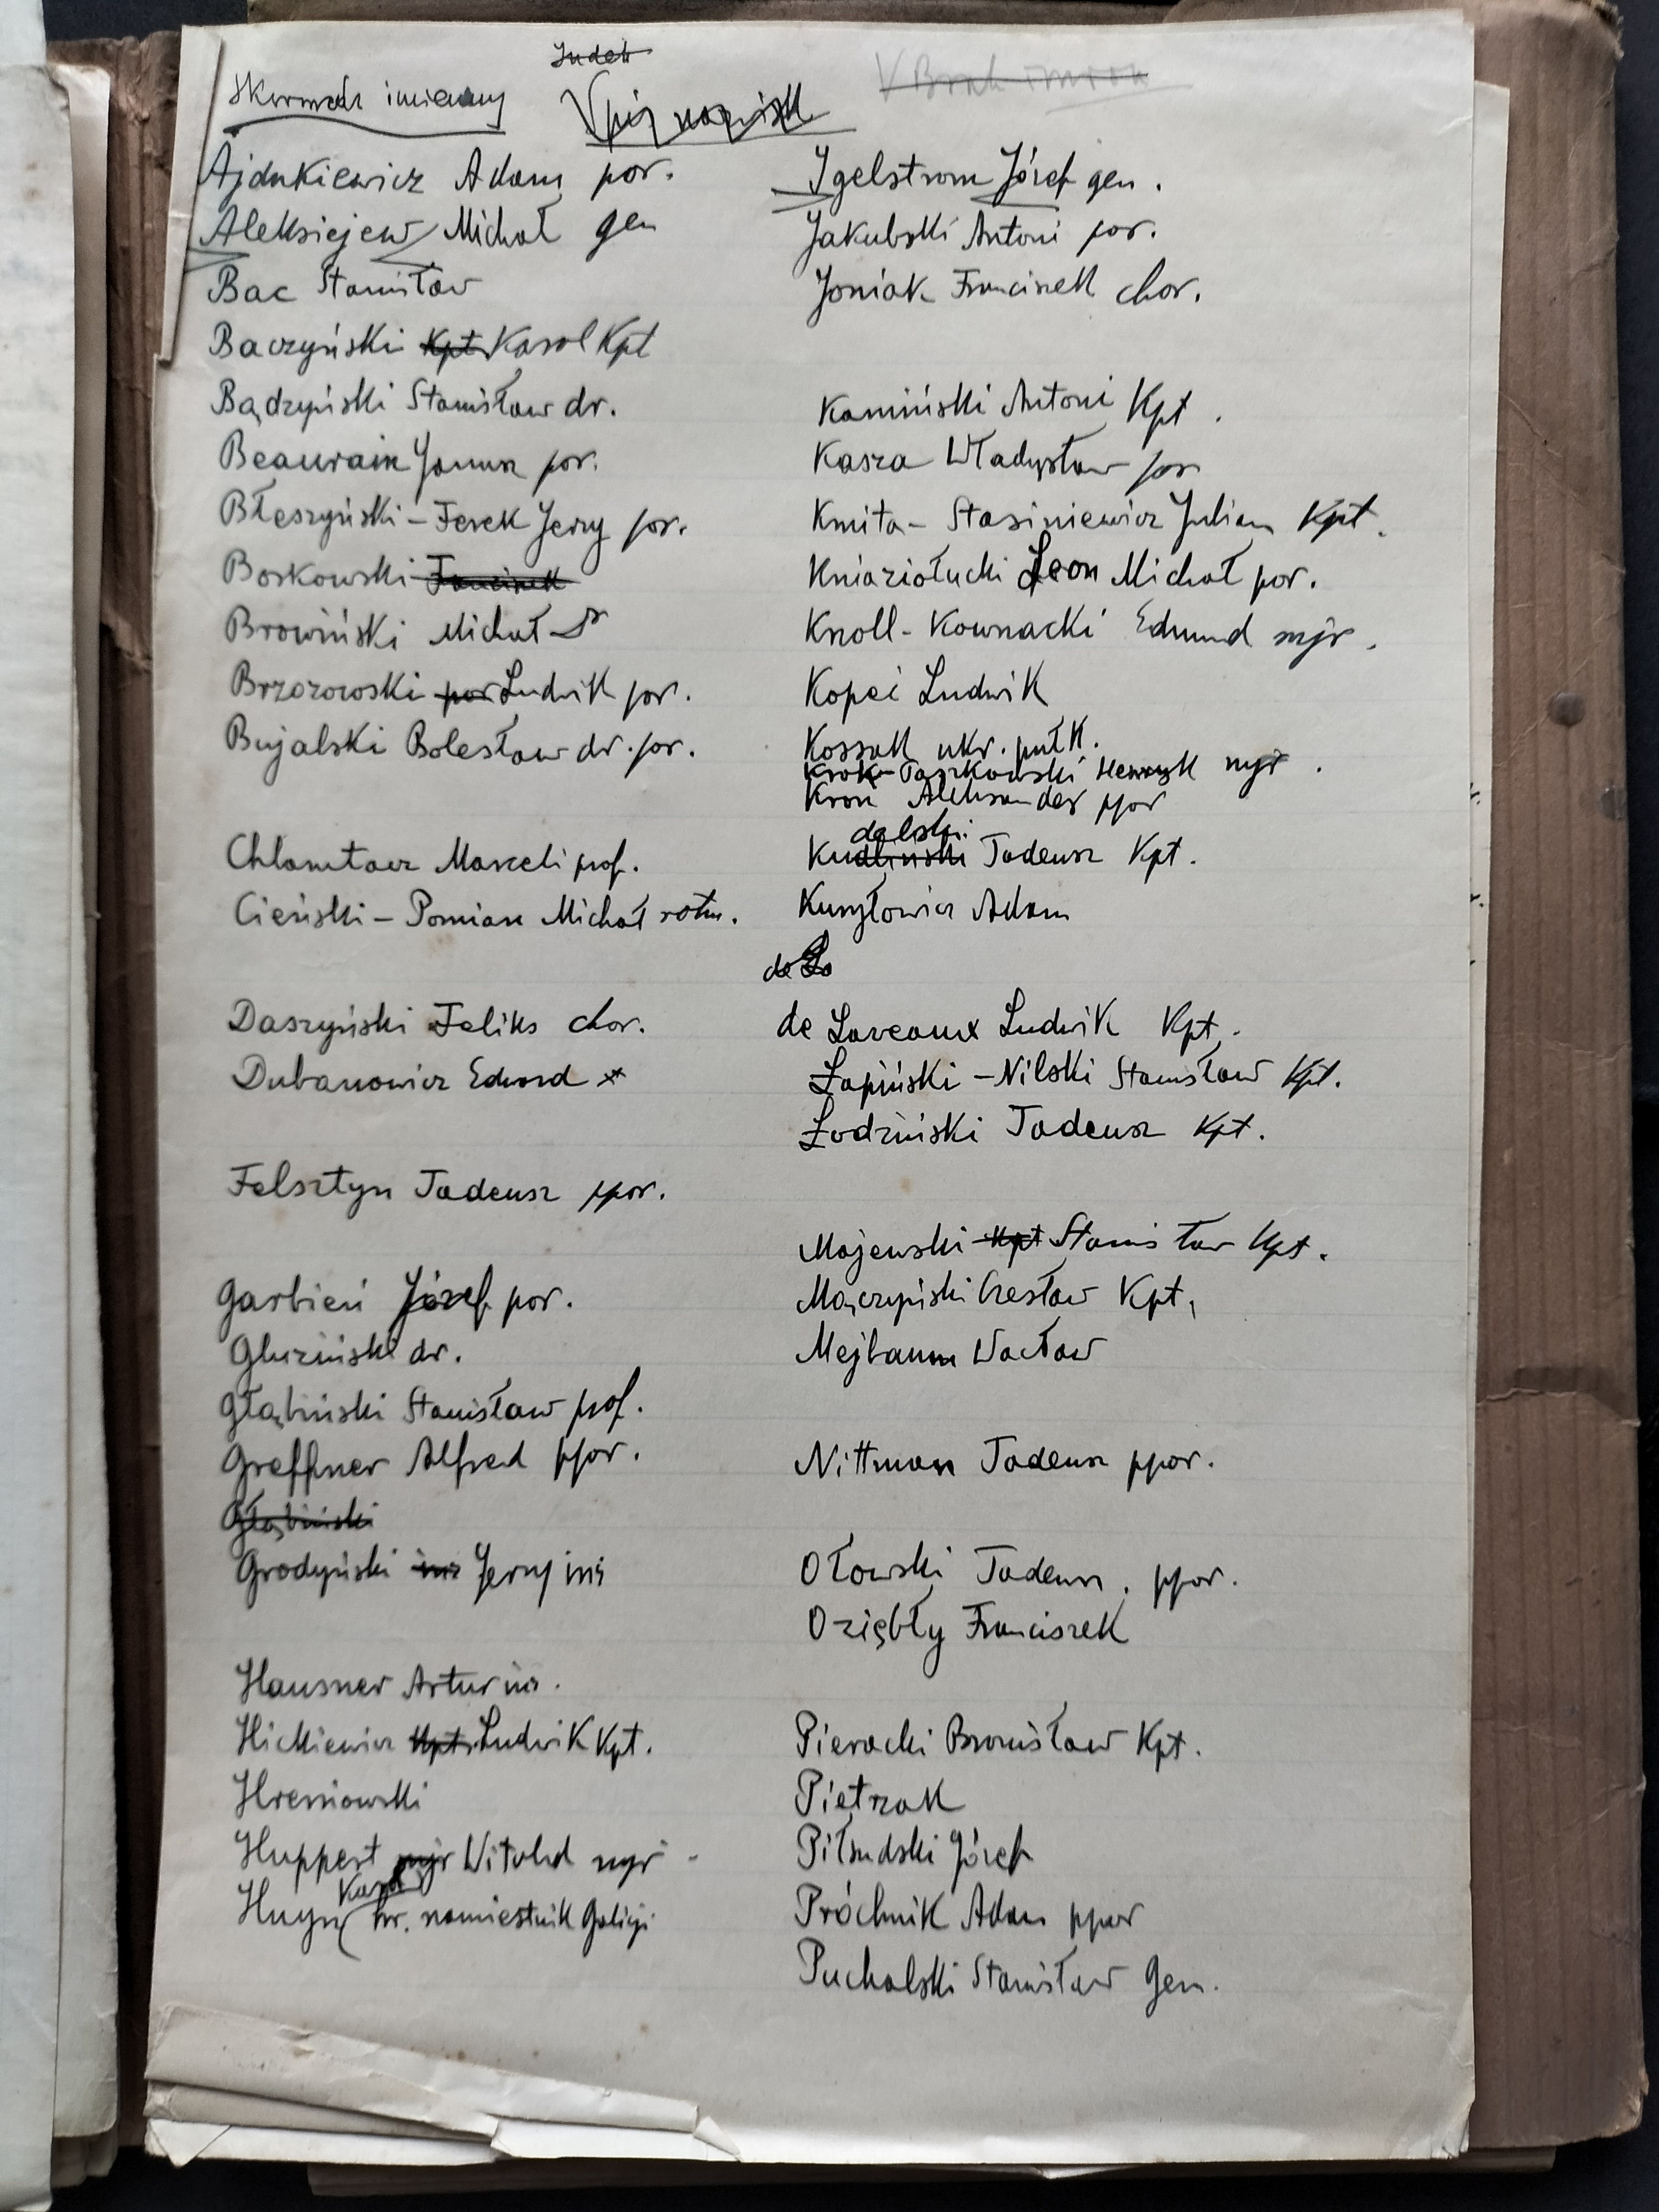 Skorowidz imienny
Ajdukiewicz Adam por.
Aleksiejew Michał gen
Bac Stanisław
Baczyński Kpt Karol Kpt
Bądzyński Stanisław dr.
Beaurain Janusz por.
Błeszyński - Ferek Jerzy por.
Boskowski Franciszek
Browiński Michał
Brzozowski por Ludwik por.
Bujalski Bolesław dr. por.
Chlamtacz Marceli prof.
Cieński - Pomian Michał rotm.
Daszyński Feliks chor.
Dubanowicz Edward
Felsztyn Tadeusz ppor.
Garbień Józef por.
Gluziński dr.
Głąbiński Stanisław prof.
Greffner Alfred ppor.
Głąbiński
Grodyński inż Jerzy inż
Hausner Artur inż.
Hickiewicz Kpt. Ludwik Kpt.
Hreniowski
Huppert mjr Witold mjr
Karol
Huyn hr. namiestnik Galicji
Igelstrom Józef gen.
Jakubski Antoni por.
Joniak Franciszek chor.
Kamiński Antoni Kpt.
Kasza Władysław por
Kmita - Stasiniewicz Julian Kpt.
Kniaziołucki Leon Michał por.
Knoll - Kownacki Edmund mjr.
Kopeć Ludwik
Kossak ukr. pułk.
Krok - Paszkowski Henryk mjr.
Kron Aleksander ppor
dalski
Kudliński Tadeusz Kpt.
Kuryłowicz Adam
de La
de Laveaux Ludwik Kpt.
Łapiński - Nilski Stanisław Kpt.
Łodziński Tadeusz Kpt.
Majewski Kpt Stanisław Kpt.
Mączyński Czesław Kpt.
Mejbaum Wacław
Nittman Tadeusz ppor.
Ołowski Tadeusz. ppor.
Oziębły Franciszek
Pieracki Bronisław Kpt.
Pietrzak
Piłsudski Józef
Próchnik Adam ppor
Puchalski Stanisław Gen.